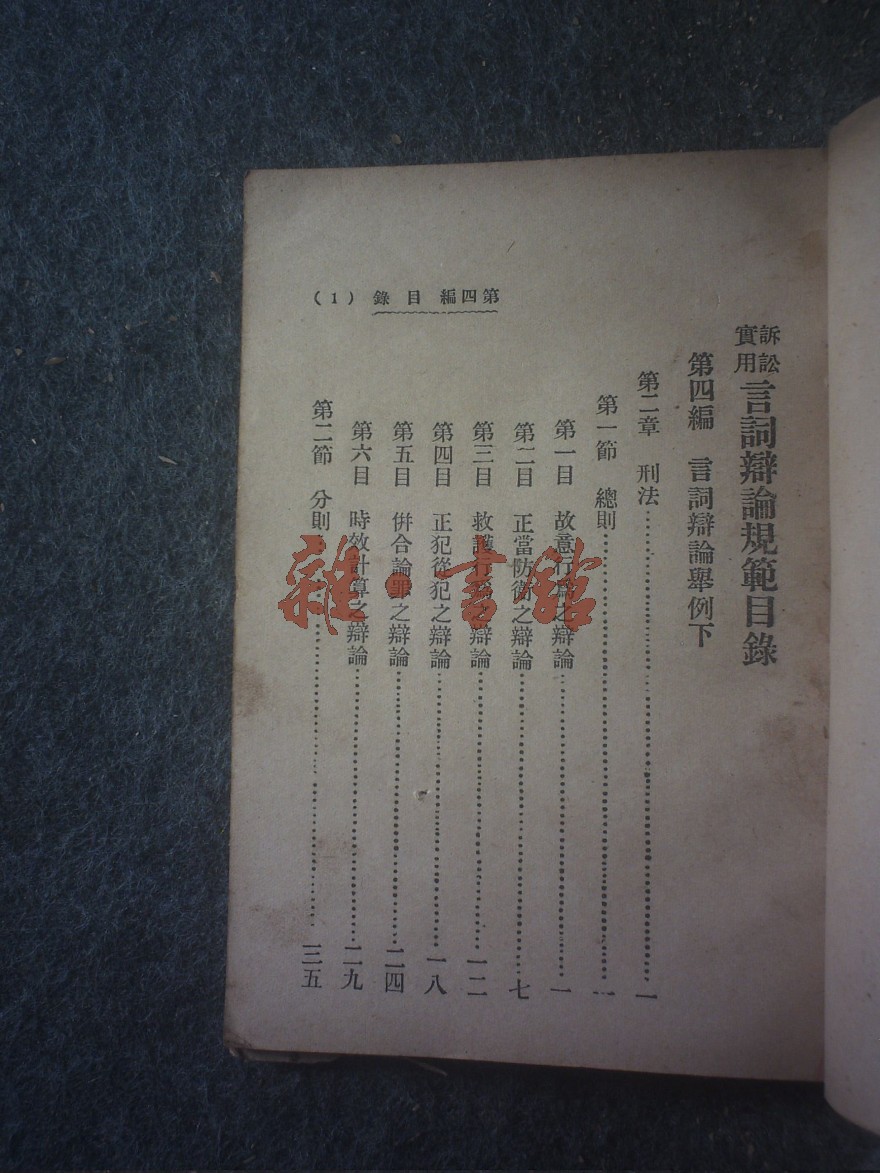 訴訟實用言詞辯論規範目錄
第四編 言詞辯論舉例下
第二章 刑法……一
第一節 總則……一
第一目 故意行爲之辯論……一
第二目 正當防衛之辯論……七
第三目 救護行爲之辯論……一二
第四目 正犯從犯之辯論……一八
第五目 倂合論罪之辯論……二四
第六目 時效計算之辯論……二九
第二節 分則……三五
第四編 目錄 (1)
雜·書館